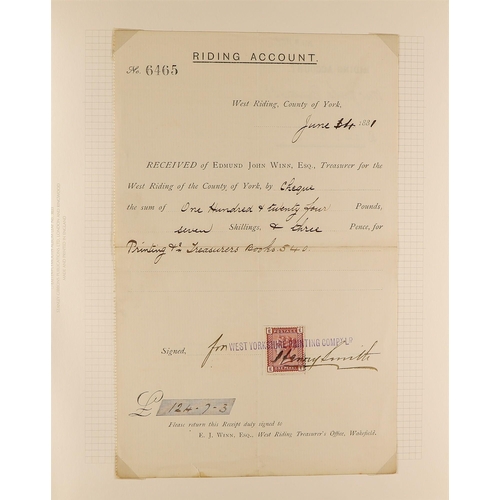 RIDING ACCOUNT.
No. 6465
West Riding, County of York,
June 1881
RECEIVED of EDMUND JOHN WINN, ESQ., Treasurer for the
West Riding of the County of York, by Cheque
the sum of One Hundred & twenty four Pounds,
seven Shillings, & three Pence, for
Printing &c Treasurers Books
Signed, for WEST YORKSHIRE PRINTING COMPY LD
POSTAGE
Henry Smith
£ 124-7-3
Please return this Receipt duly signed to
E. J. WINN, ESQ., West Riding Treasurer's Office, Wakefield.